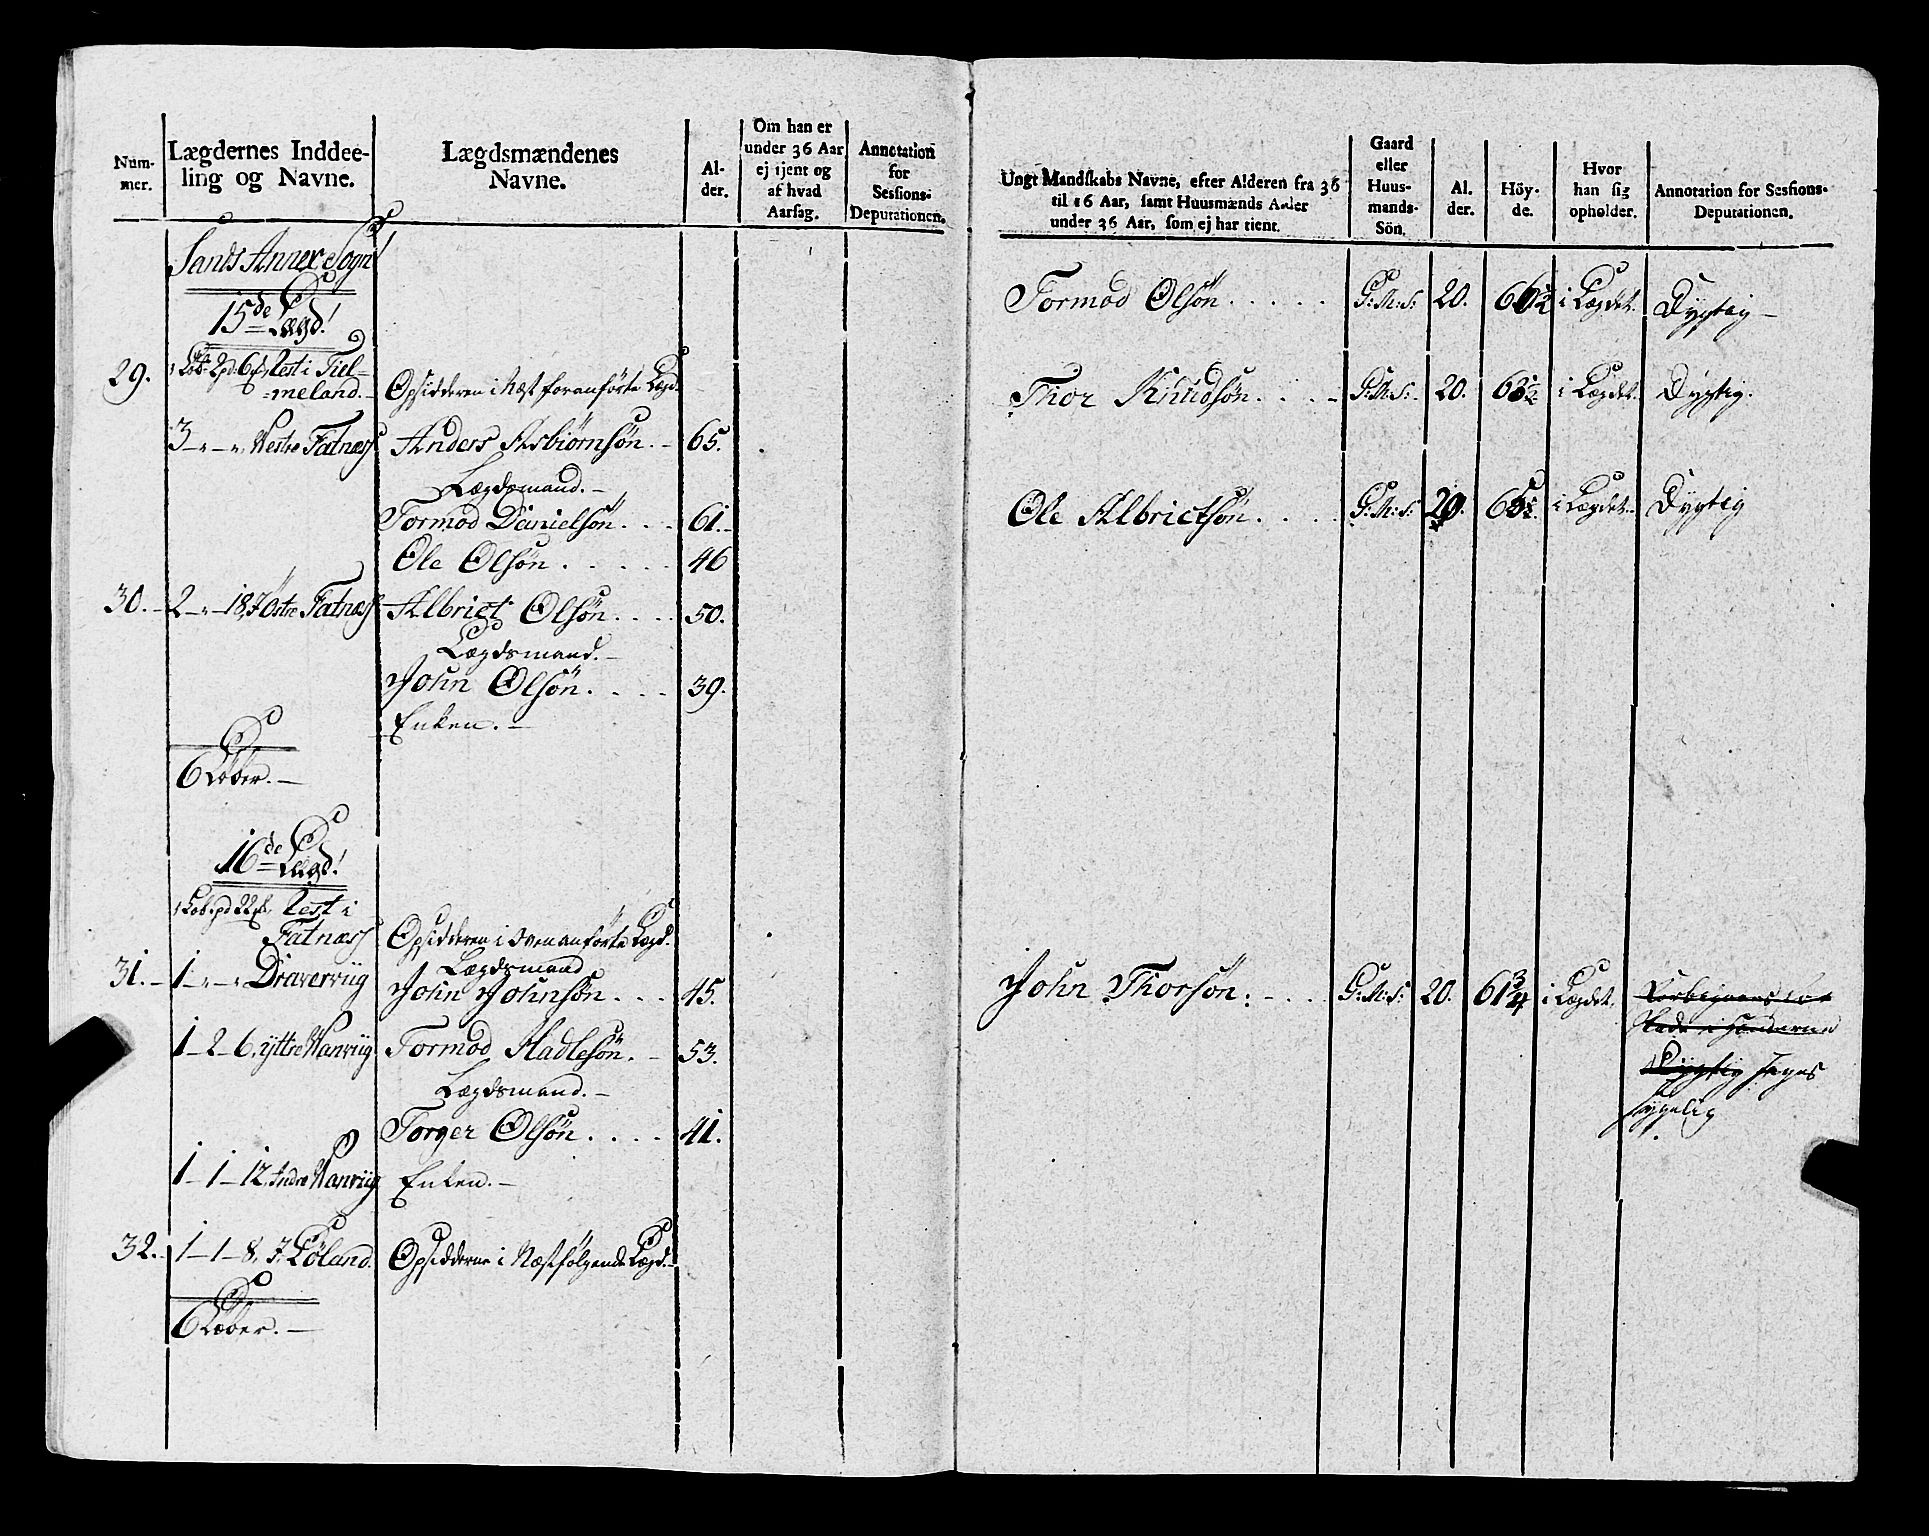 Num-
mer.
Lægdernes Inddee-
ling og Navne.
Lægdsmændenes
Navne.
Al-
der.
Om han er
under 36 Aar
ej tjent og
af hvad
Aarsag.
Annotation
for
Sessions-
Deputationen.
Sands Annex Sogn
15de Lægd!
29.
1 Løb 2pd. 6 Rest i Tiel-
=meland.-
Opsidderen i Næst foranførte Lægd.
3 - " - ", Westre Fatnæss
Anders Asbiørnsøn. - 65.
Lægdsmand. -
Tormod Danielsøn . . . 61.-
Ole Olsøn . . . . . 46
30. - 2 - " - 18, Østre Fatnæss
Albrict Olsøn . . . . 50.
Lægdsmand. -
John Olsøn . . . . 39.
Enken. -
6 Løber. -
16de Lægd!
1 Løb 1 pd 22, Rest i
Fatnæss
Opsidderen i Ovenanførte Lægd.
Lægdsmand
31. - 1 - " - " Draverviig
John Johnsøn . . . 45.
1 - 2 - 6, yttre Wanviig
Tormod Aadlesøn. - 53.
Lægdsmand. -
Torger Olsøn . . . . 41.
1 - 1 - 12, Indre Wanviig
Enken. -
32. - 1 - 1 - 8, Løland.
Opsidderne i Næstfølgende Lægd. -
6 Løber. -
Ungt Mandskabs Navne, efter Alderen fra 36
til 16 Aar, samt Huusmænds Alder
under 36 Aar, som ej har tient.
Gaard
eller
Huus-
mands-
Sön.
Al.
der.
Höy-
de.
Hvor
han sig
opholder.
Annotation for Sessions-
Deputationen.
Tormod Olsøn . . . . . G:M:S: 20. 66½ i Lægdet. Dygtig -
Thor Knudsøn . . . - G:M:S: 20. 63½ i Lægdet. Dygtig.
Ole Albrictsøn . . . . G:M:S: 20. 65½. i Lægdet. Dygtig
John Thorsøn: - . . . G:M:S: 20. 61¾ i Lægdet.
Skade i Hænderne
Dygtig siges
sygelig